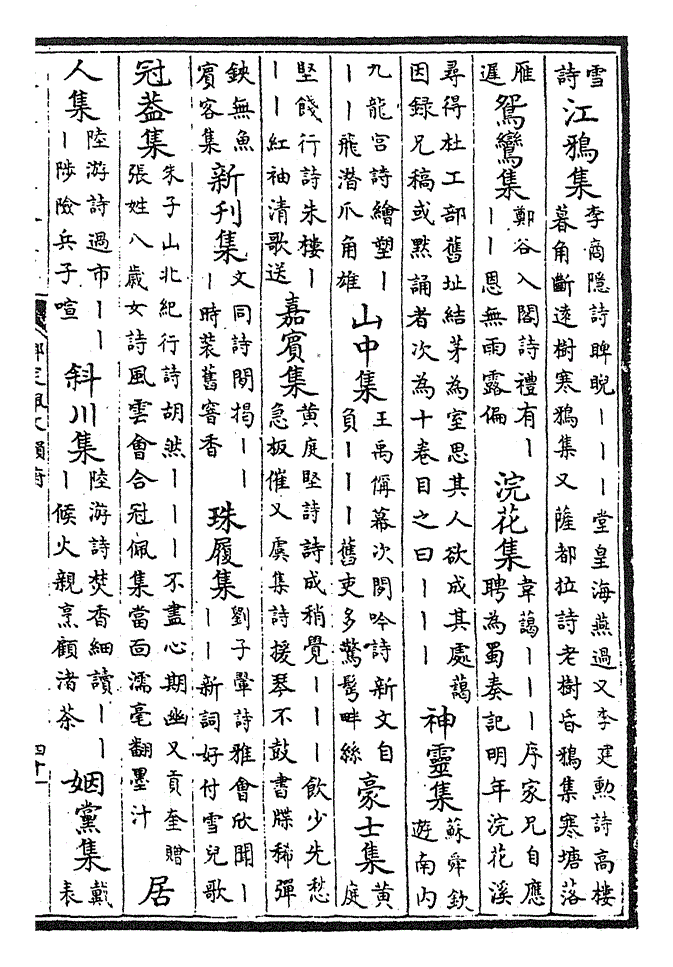 雪
詩
江鴉集
李商隱詩睥睨｜｜｜堂皇海燕過又李建勲詩高樓
暮角斷遠樹寒鴉集又薩都拉詩老樹昏鴉集寒塘落
雁
遲
鴛鸞集
鄭谷入閣詩禮有｜
｜｜恩無雨露偏
浣花集
韋藹｜｜｜序家兄自應
聘為蜀奏記明年浣花溪
尋得杜工部舊址結茅為室思其人欲成其處藹
因録兄稿或黙誦者次為十卷目之曰｜｜｜
神靈集
蘇舜欽
遊南内
九龍宫詩繪塑｜
｜｜飛潛爪角雄
山中集
王禹偁幕次閒吟詩新文自
負｜｜｜舊吏多驚髩畔絲
豪士集
黄
庭
堅餞行詩朱樓｜
｜｜紅袖清歌送
嘉賓集
黄庭堅詩詩成稍覺｜｜｜飲少先愁
急板催又虞集詩援琴不鼓書牒稀彈
鋏無魚
賓客集
新刋集
文同詩閒掲｜｜
｜時裝舊審香
珠履集
劉子翬詩雅會欣聞｜
｜｜新詞好付雪兒歌
冠蓋集
朱子山北紀行詩胡然｜｜｜不盡心期幽又貢奎贈
張姓八歲女詩風雲會合冠佩集當面濡毫翻墨汁
居
人集
陸游詩過市｜｜
｜陟險兵子喧
斜川集
陸游詩焚香細讀｜｜
｜候火親烹顧渚茶
姻黨集
戴
表